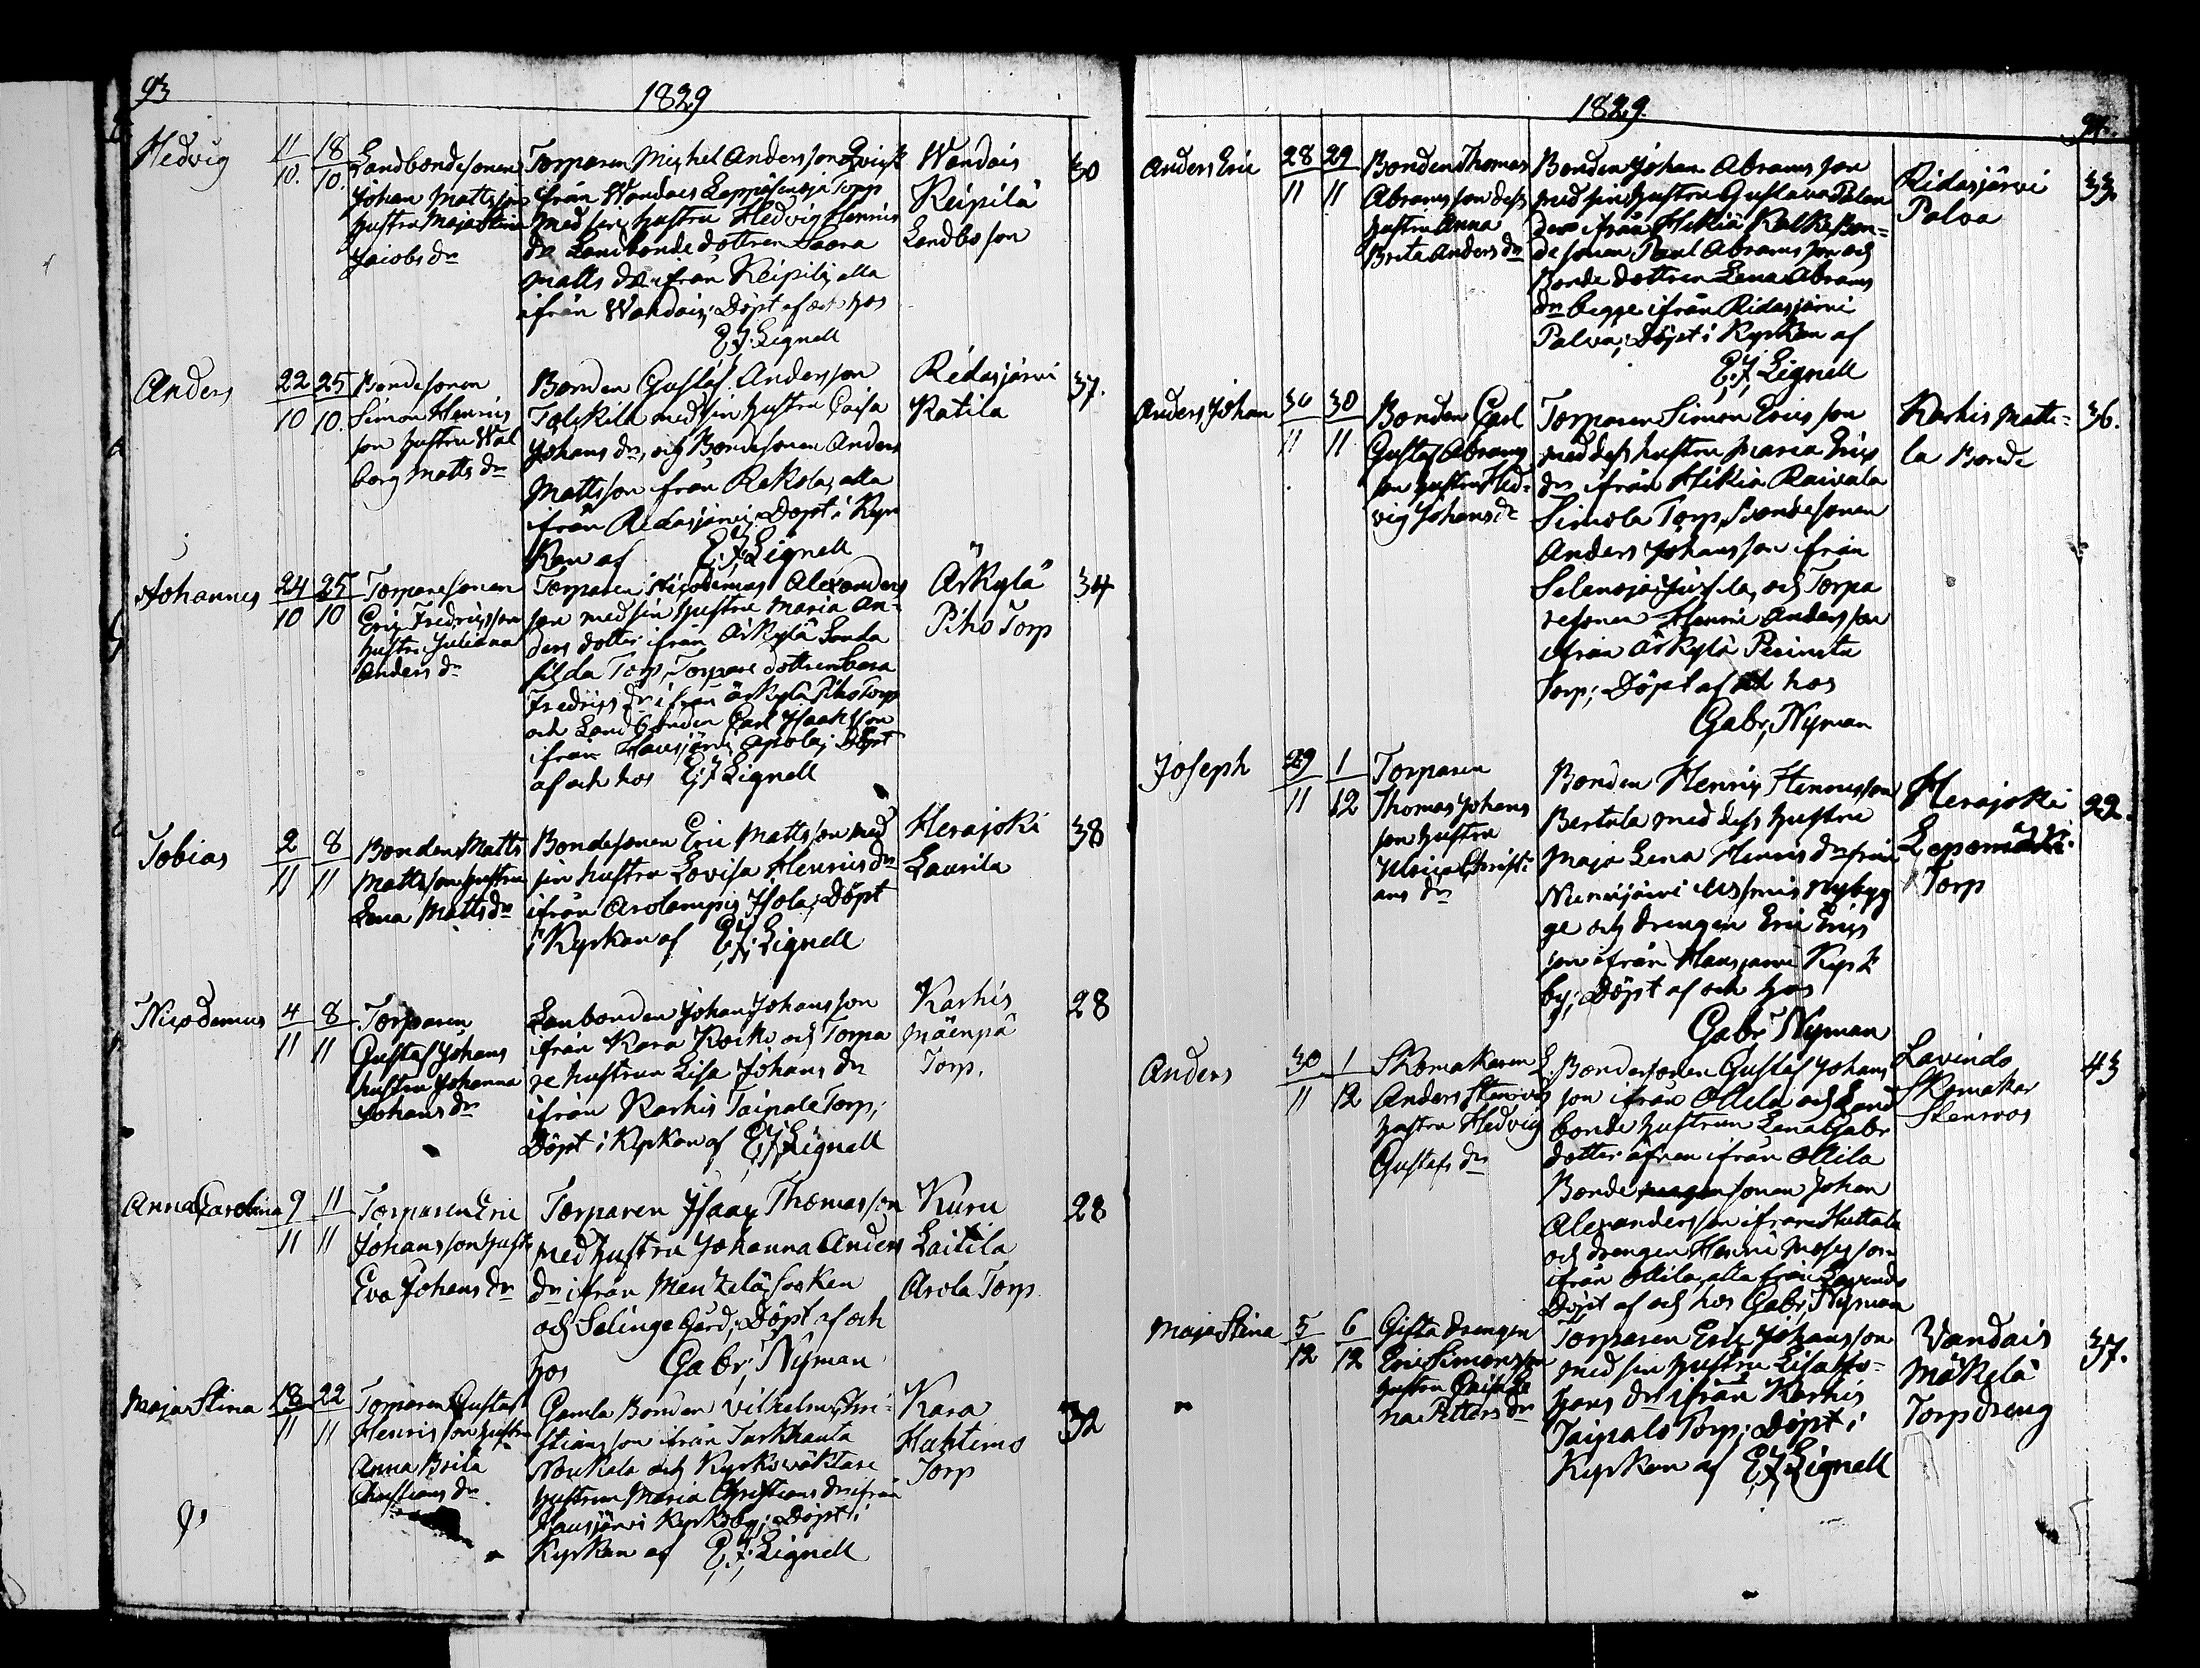 93
1829
Hedvig
11 18
10. 10.
Landbondesonen
Johan Mattsson
hustru Maja Stina
Jacobs dr
Torparen Michel Andersson Qvist
ifrån Wandais Leppäsenoja Torp
med sin hustru Hedvig Henrics
dr Landbonde dottren Saara
Matts dr ifrån Keipilä, alla
ifrån Wandais; Döpt af och hos
E. J. Lignell
Wandais
Keipilä
Landbo son
30
Anders
22 25
10 10.
Bondesonen
Simon Henrics
son hustru Wal
borg Matts dr
Bonden Gustaf Andersson
med sin hustru Caisa
Johans dr, och Bondesonen Anders
Mattsson ifrån Rekola, alla
ifrån Ridasjärvi; Döpt i Kyr
kan af E. J. Lignell
Ridasjärvi
Katila
37.
Johannes
24 25
10 10
Torparesonen
Eric Fredricsson
hustru Juliana
Anders dr
Torparen Nicodemus Alexanders
son med sin hustru Maria An-
ders dotter ifrån Ärkylä Sonda
silda Torp, Torpare dottren Sara
Fredrics dr ifrån Ärkylä Piho Torp
och Landbonden Carl Isaaksson
ifrån Hausjärvi Apola; Döpt
af och hos E. J. Lignell
Ärkylä
Piho Torp
34
Tobias
2 8
11 11
Bonden Matts
Mattsson hustru
Lena Matts dr
Bondesonen Eric Mattsson med
sin hustru Lovisa Henrics dr
ifrån Arolampi Isola; Döpt
i Kyrkan af E. J. Lignell
Herajoki
Laurila
38
Nicodemus
4 8
11 11
Torparen
Gustaf Johans
hustru Johanna
Johans dr
Lanbonden Johan Johansson
ifrån Kara Koiko och Torpa
re hustrun Lisa Johans dr
ifrån Karhis Taipale Torp;
Döpt i Kyrkan af E. J. Lignell
Karhis
Mäenpä
Torp.
28
Anna Carolina
9 11
11 11
Torparen Eric
Johansson hustr
Eva Johans dr
Torparen Isaac Thomasson
med hustru Johanna Anders
dr ifrån Mentzelä Socken
och Sälinge Gård; Döpt af och
hos Gabr. Nyman
Kuru
Laitila
Arola Torp
28
Maja Stina
18 22
11 11
Torparen Gustaf
Henricsson hustru
Anna Brita
Christians dr
Gamla Bonden Vilhelm Chri-
stiansson ifrån Turkhauta
Noukala och Kyrkoväktare
hustrun Maria Christians dr ifrån
Hausjärvi Kyrkoby; Döpt i
Kyrkan af E. J. Lignell
Kara
Huhtimo
Torp
32
1829.
94.
Anders Eric
28 29
11 11
Bonden Thomas
Abramsson dess
hustru Anna
Brita Anders dr
Bonden Johan Abramsson
med sin hustru Gustava
ifrån Hikiä Kalke Bon-
desonen Paul Abramsson och
Bonde dottren Lena Abrams
dr begge ifrån Ridasjärvi
Palva; Döpt i Kyrkan af
E. J. Lignell
Ridasjärvi
Palva
33.
Anders Johan
30 30
11 11
Bonden Carl
Gustaf Abrams
son hustru Hed-
vig Johans dr
Torparen Simon Ericsson
med dess hustru Maria Erics
dr ifrån Hikiä Raivala
Simola Torp, Bondesonen
Anders Johansson ifrån
Selänoja och Torpa
resonen Henric Andersson
ifrån Ärkylä Perinsta
Torp; Döpt af och hos
Gabr. Nyman
Karhis Matti-
la Bonde
36.
Joseph
29 1
11 12
Torparen
Thomas Johans
son hustru
Ulrica Christi
ans dr
Bonden Henric Henricsson
Bertula med dess hustru
Maja Lena Henrics dr från
Nurmijärvi Nybyg
ge och drengen Eric Erics
son ifrån Hausjärvi Kyrk
by; Döpt af och hos
Gabr. Nyman
Herajoki
Lepomäki
Torp
22.
Anders
30 1
11 12
Skomakaren
Anders Stenroos
hustru Hedvig
Gustafs dr
Bondesonen Gustaf Johans
son ifrån Ollila och Land
bonde hustrun Lena Gabr
dotter äfven ifrån Ollila
Bonde sonen Johan
Alexandersson ifrån Huttala
och drengen Henric Mosesson
ifrån Ollila alla från Lavinda
Döpt af och hos Gabr. Nyman
Lavindo
Skomakar
Stenroos
43
Maja Stina
5 6
12 12
Gifta drengen
Eric Simonsson
hustru Caisa Le
na Petters dr
Torparen Eric Johansson
med sin hustru Lisa Jo-
hans dr ifrån Karhis
Taipale Torp; Döpt i
Kyrkan af E. J. Lignell
Vandais
Mäkelä
Torpdreng
37.